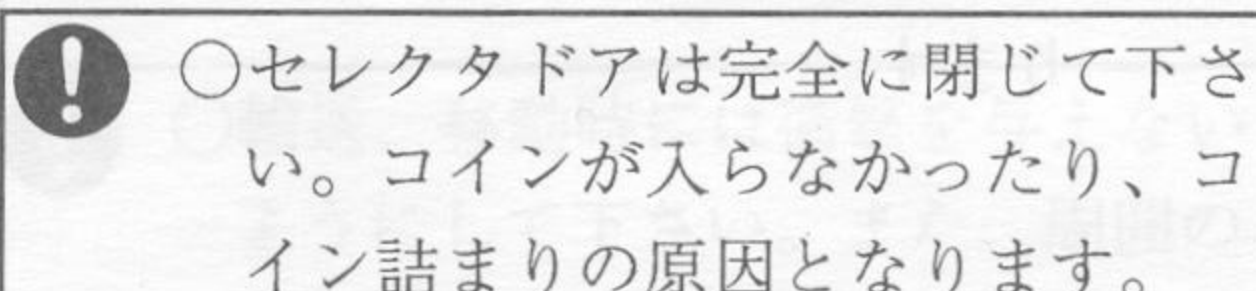 ○セレクタドアは完全に閉じて下さ
い。コインが入らなかったり、コ
イン詰まりの原因となります。